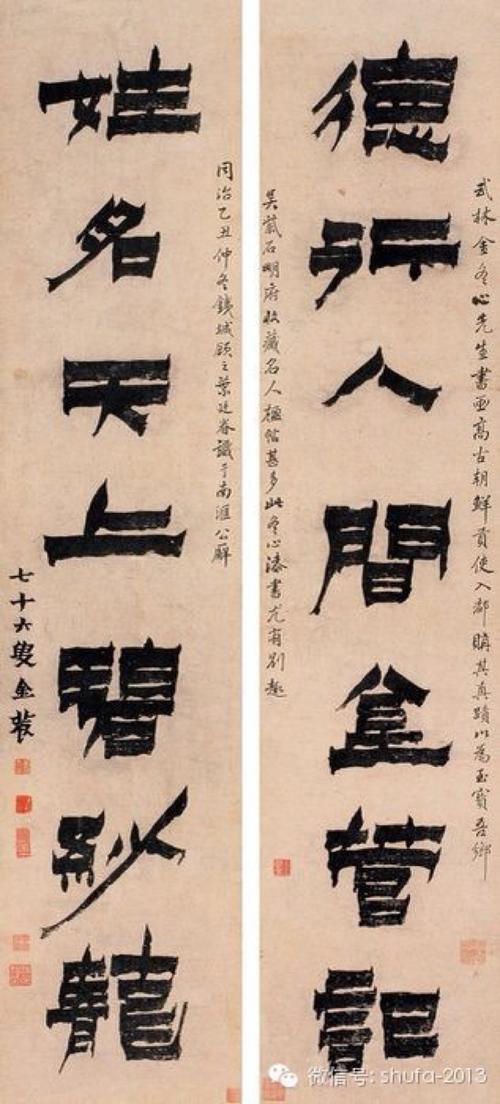 武林金冬心先生書画高古朝鮮貢使入都購其真蹟以為至寶吾鄉
德行人間金管記
吳紫石明府收藏名人楹帖甚多此冬心漆書尤有別趣
同治乙丑仲冬鐵城顧之葉廷眷識于南滙公廨
姓名天上碧紗龍
七十六叟金農
微信号: shufa-2013